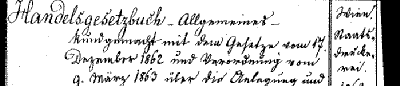 Handelsgesetzbuch - Allgemeines -
kundgemacht mit dem Gesetze vom 17.
Dezember 1862 und Verordnung vom
9. März 1863 über die Anlegung und
Wien.
Staats-
drucke-
rei.